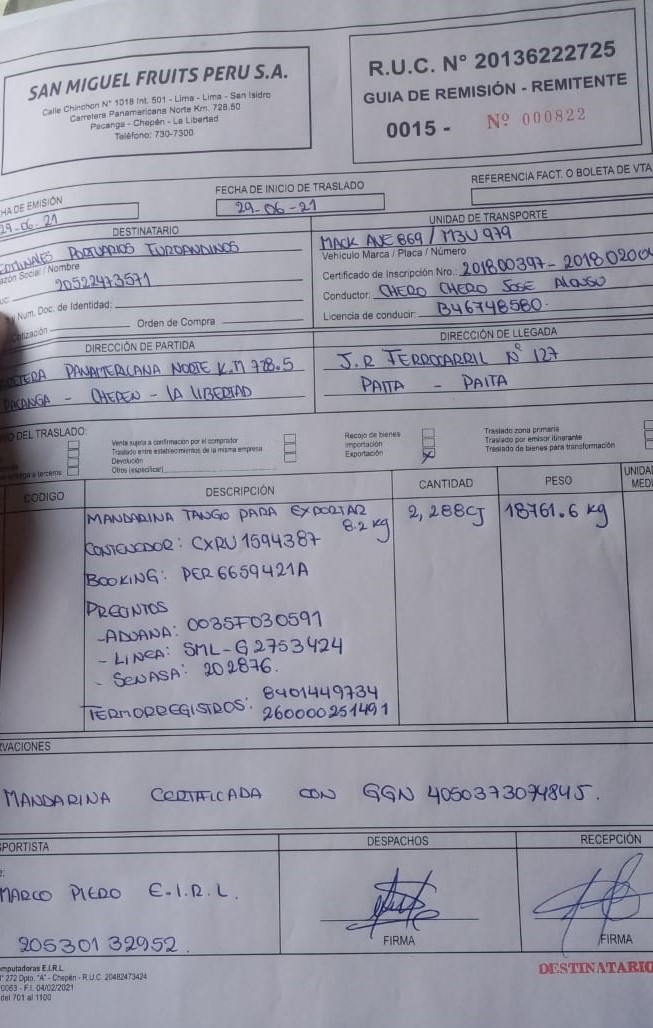 SAN MIGUEL FRUITS PERU S.A.
Calle Chinchon N° 1018 Int. 501 - Lima - Lima - San Isidro
Carretera Panamericana Norte Km. 728.50
Pacanga - Chepén - La Libertad
Teléfono: 730-7300
R.U.C. N° 20136222725
GUIA DE REMISIÓN - REMITENTE
0015 - Nº 000822
HA DE EMISIÓN
29-06-21
FECHA DE INICIO DE TRASLADO
29-06-21
REFERENCIA FACT. O BOLETA DE VTA
DESTINATARIO
PORTUARIOS EUROANDINOS
azón Social / Nombre
20522473571
Num. Doc. de Identidad:
otización Orden de Compra
UNIDAD DE TRANSPORTE
MACK AVE 869 / M3U 979
Vehículo Marca / Placa / Número
Certificado de Inscripción Nro.: 201800397 - 20180200
Conductor: CHERO CHERO JOSE ALONSO
Licencia de conducir: B46748580.
DIRECCIÓN DE PARTIDA
PANAMERICANA NORTE K.M 728.5
PACANGA - CHEPEN - LA LIBERTAD
DIRECCIÓN DE LLEGADA
J.R FERROCARRIL Nº 127
PAITA - PAITA
O DEL TRASLADO:
Venta sujeta a confirmación por el comprador
Traslado entre establecimientos de la misma empresa
Devolución
Otros (especificar)
Recojo de bienes
Importación
Exportación X
Traslado zona primaria
Traslado por emisor itinerante
Traslado de bienes para transformación
entrega a terceros
CODIGO DESCRIPCIÓN CANTIDAD PESO UNIDA MEDI
MANDARINA TANGO PARA EXPORTAR 2,288CJ 18761.6 kg
8.2 kg
CONTENEDOR: CXRU 1594387
BOOKING: PER 6659421A
PRECINTOS
- ADUANA: 0035F030591
- LINEA: SML-G2753424
- SENASA: 202876.
TERMORREGISTROS: 8401449734
260000251491
VACIONES
MANDARINA CERTIFICADA CON GGN 4050373074845.
SPORTISTA
MARCO PIERO E.I.R.L.
20530132952.
DESPACHOS
FIRMA
RECEPCIÓN
FIRMA
DESTINATARIO
mputadoras E.I.R.L.
N° 272 Dpto. "A" - Chepén - R.U.C. 20482473424
0063 - F.I. 04/02/2021
del 701 al 1100